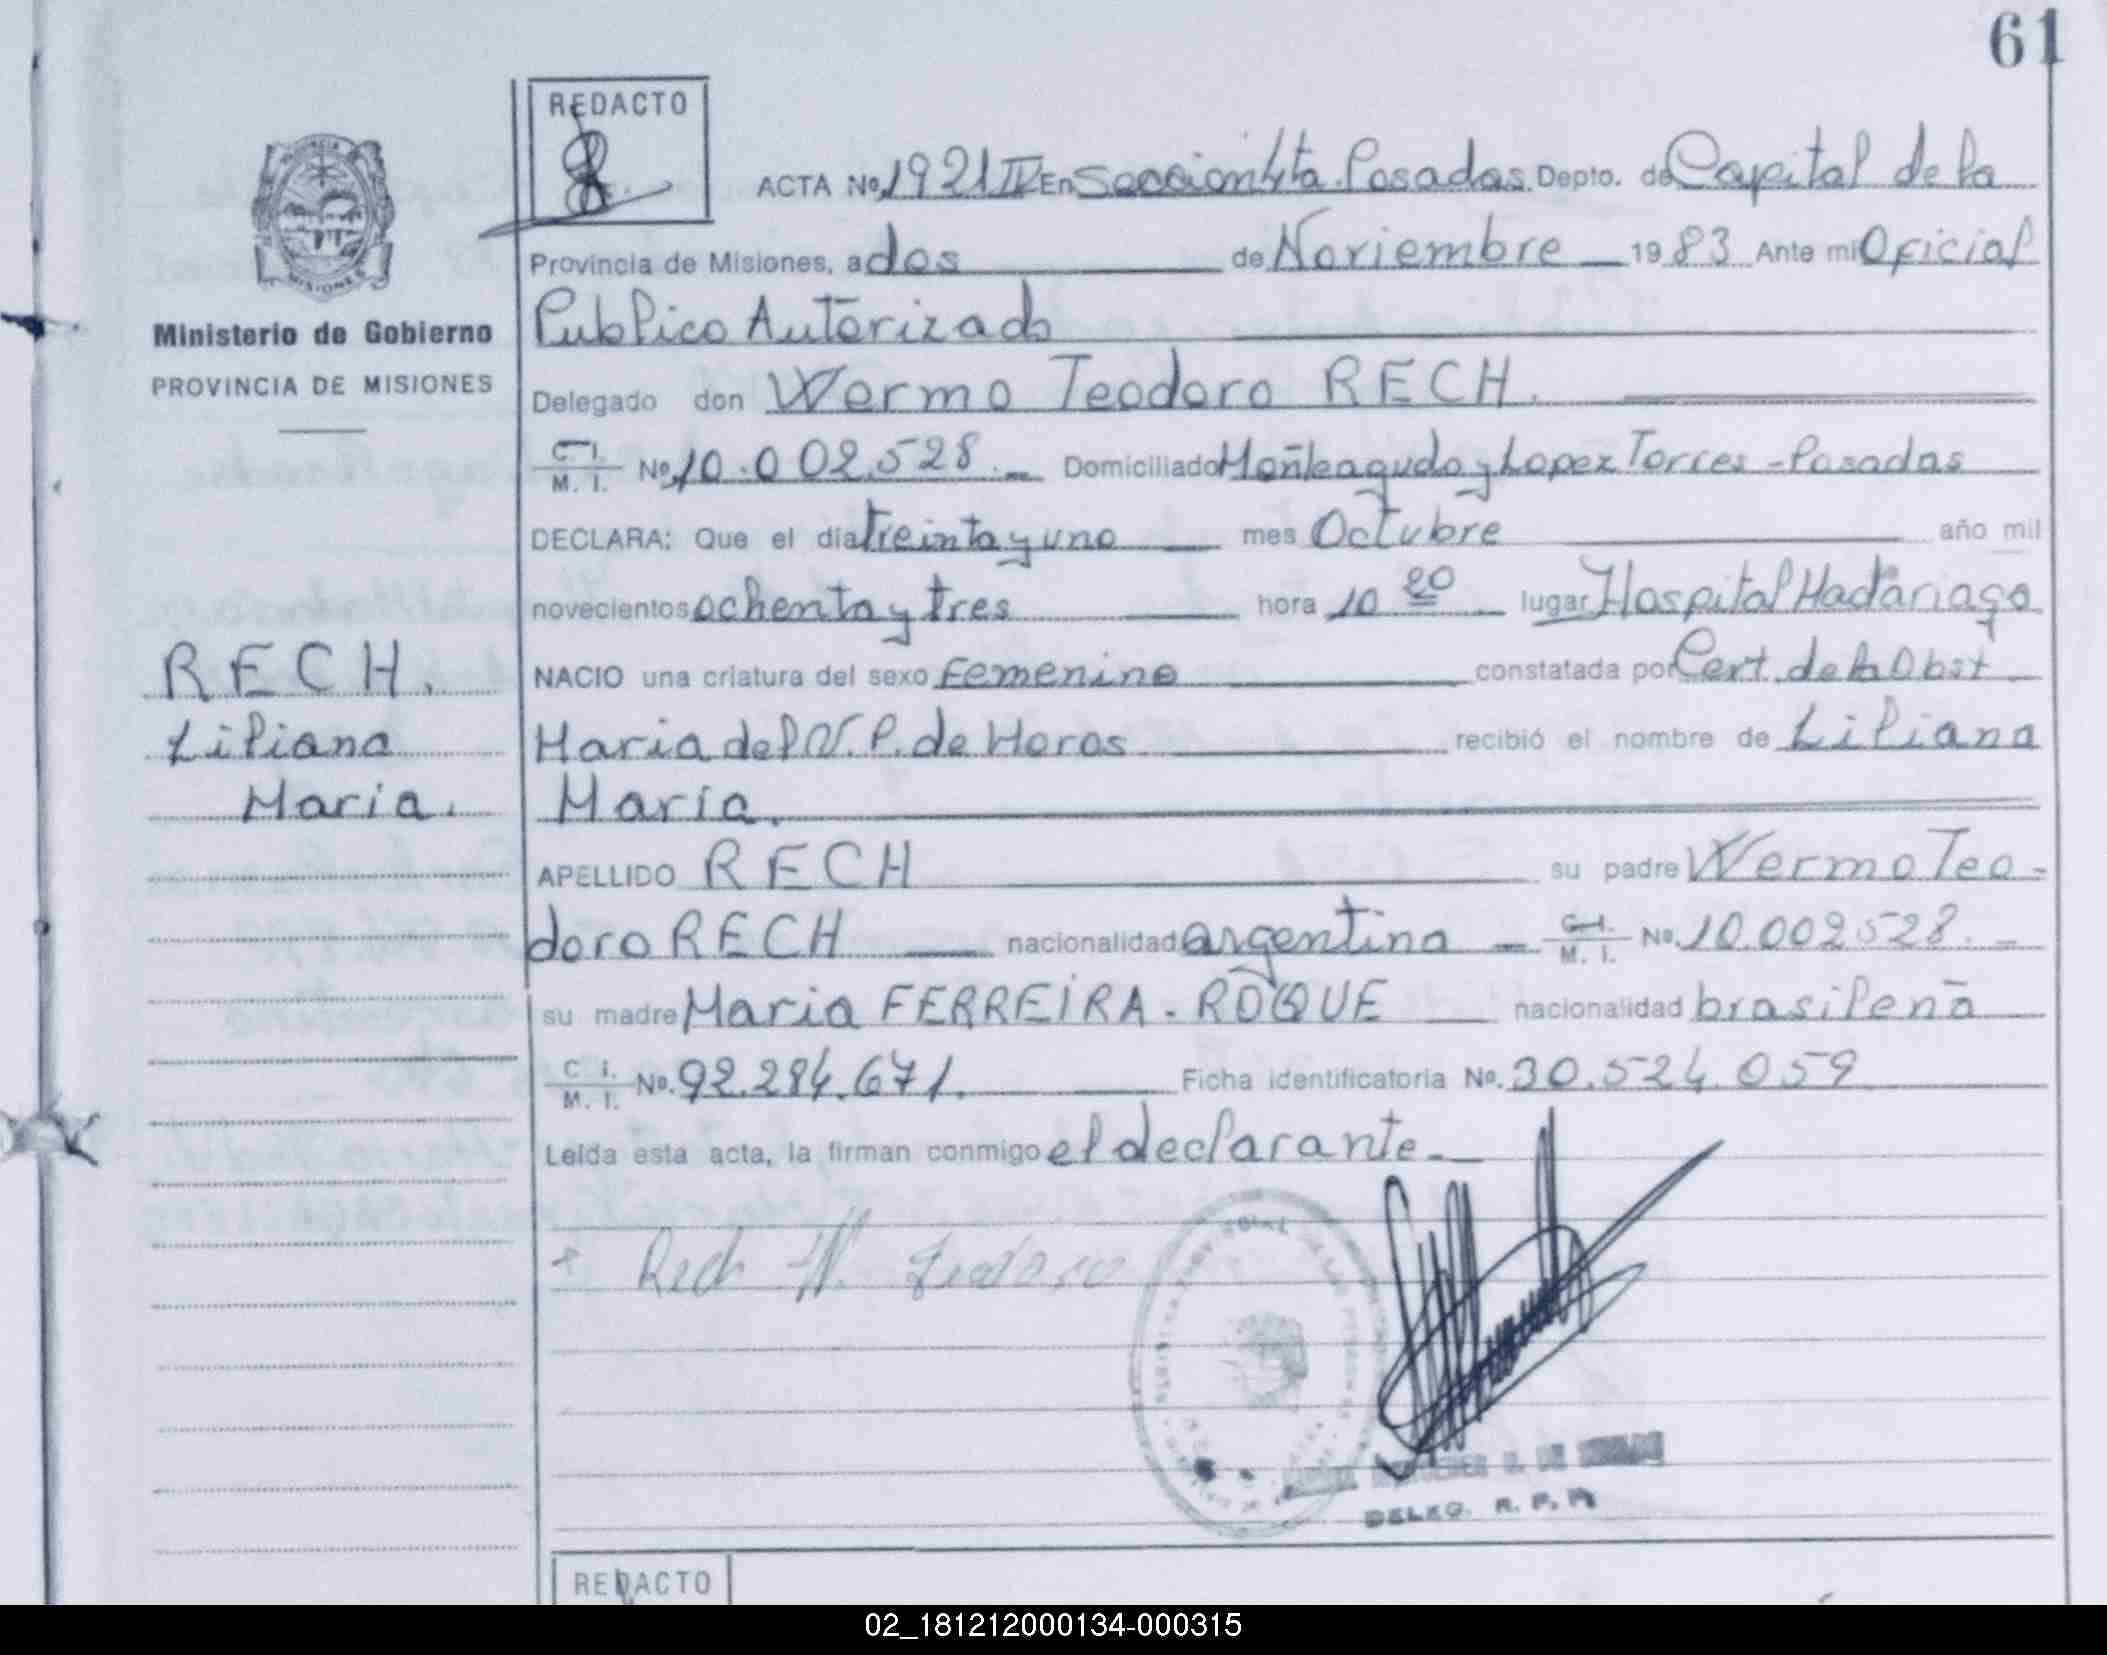 61
REDACTO
ACTA No. 1921 IV En Seccion 4ta. Posadas Depto. de Capital de la
Provincia de Misiones, a dos de Noviembre 1983 Ante mi Oficial
Publico Autorizado
Delegado don Wermo Teodoro RECH.
C. I.
M. I. No. 10.002.528. Domiciliado Monteagudo y Lopez Torres - Posadas
DECLARA: Que el dia treinta y uno mes Octubre año mil
novecientos ochenta y tres hora 10 20 lugar Hospital Madariaga
NACIO una criatura del sexo Femenino constatada por Cert. de la Obst
Maria del V. P. de Moros recibió el nombre de Liliana
Maria.
APELLIDO RECH su padre Wermo Teo-
doro RECH nacionalidad argentina C. I.
M. I. No. 10.002528.
su madre Maria FERREIRA - ROQUE nacionalidad brasileña
C. I.
M. I. No. 92.284.671. Ficha identificatoria No. 30.524.059
Leida esta acta, la firman conmigo el declarante.
Rech W. Teodoro
DELEG. R. P. P.
REDACTO
PROVINCIA DE
MISIONES
Ministerio de Gobierno
PROVINCIA DE MISIONES
RECH.
Liliana
Maria.
02_181212000134-000315